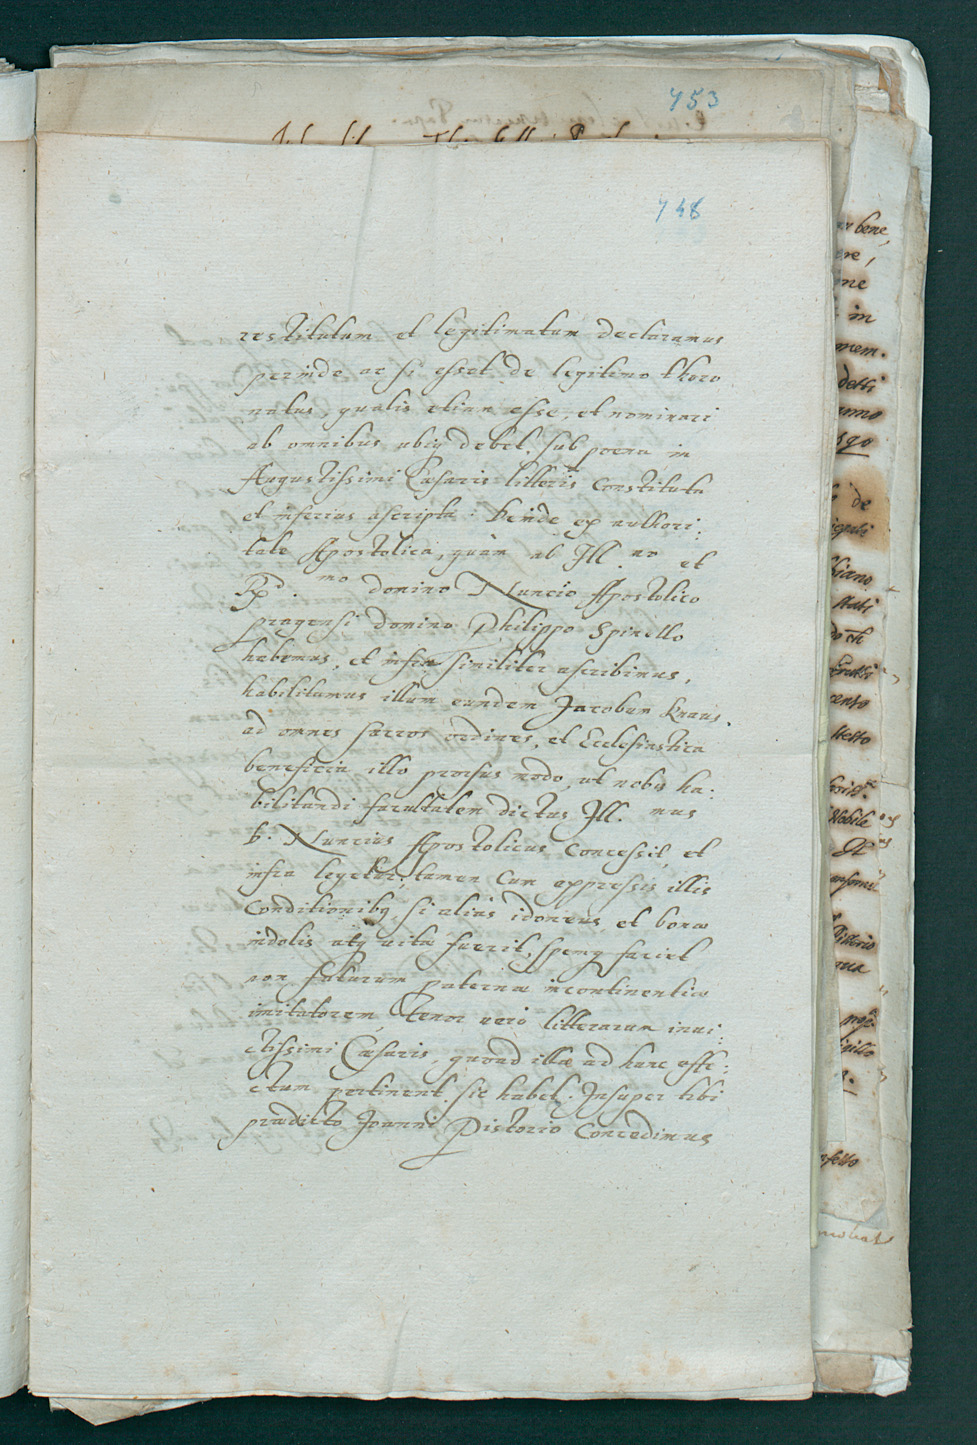 753
748
restitutum et legitimatum declaramus
perinde ac si esset de legitimo thoro
natus, qualis etiam esse, et nominari
ab omnibus ubiq debet. sub poena in
Augustissimi Cæsaris litteris constituta
et inferius ascripta. Deinde ex authori:
tate Apostolica, quàm ab Ill.mo et
R.mo domino Nuncio Apostolico
pragensi domino Philippo Spinello
habemus, et infra similiter ascribimus,
habilitamus illum eundem Jacobum Knaus.
ad omnes sacros ordines, et Ecclesiastica
beneficia illo prorsus modo, ut nobis ha:
bilitandi facultatem dictus Ill. mus
D. Nuncius Apostolicus concessit, et
infra legetur, tamen cum expressis illis
conditionibq, si aliàs idoneus, et bonæ
indolis atq vitæ fuerit, spemq faciet
non futurum paternæ incontinentiæ
imitatorem. Tenor verò litterarum invi:
ctissimi Cæsaris, quoad illæ ad hunc effe:
ctum pertinent. sic habet. Insuper tibi
prædicto Joanni Pistorio concedimus
bene,
in
detti
de